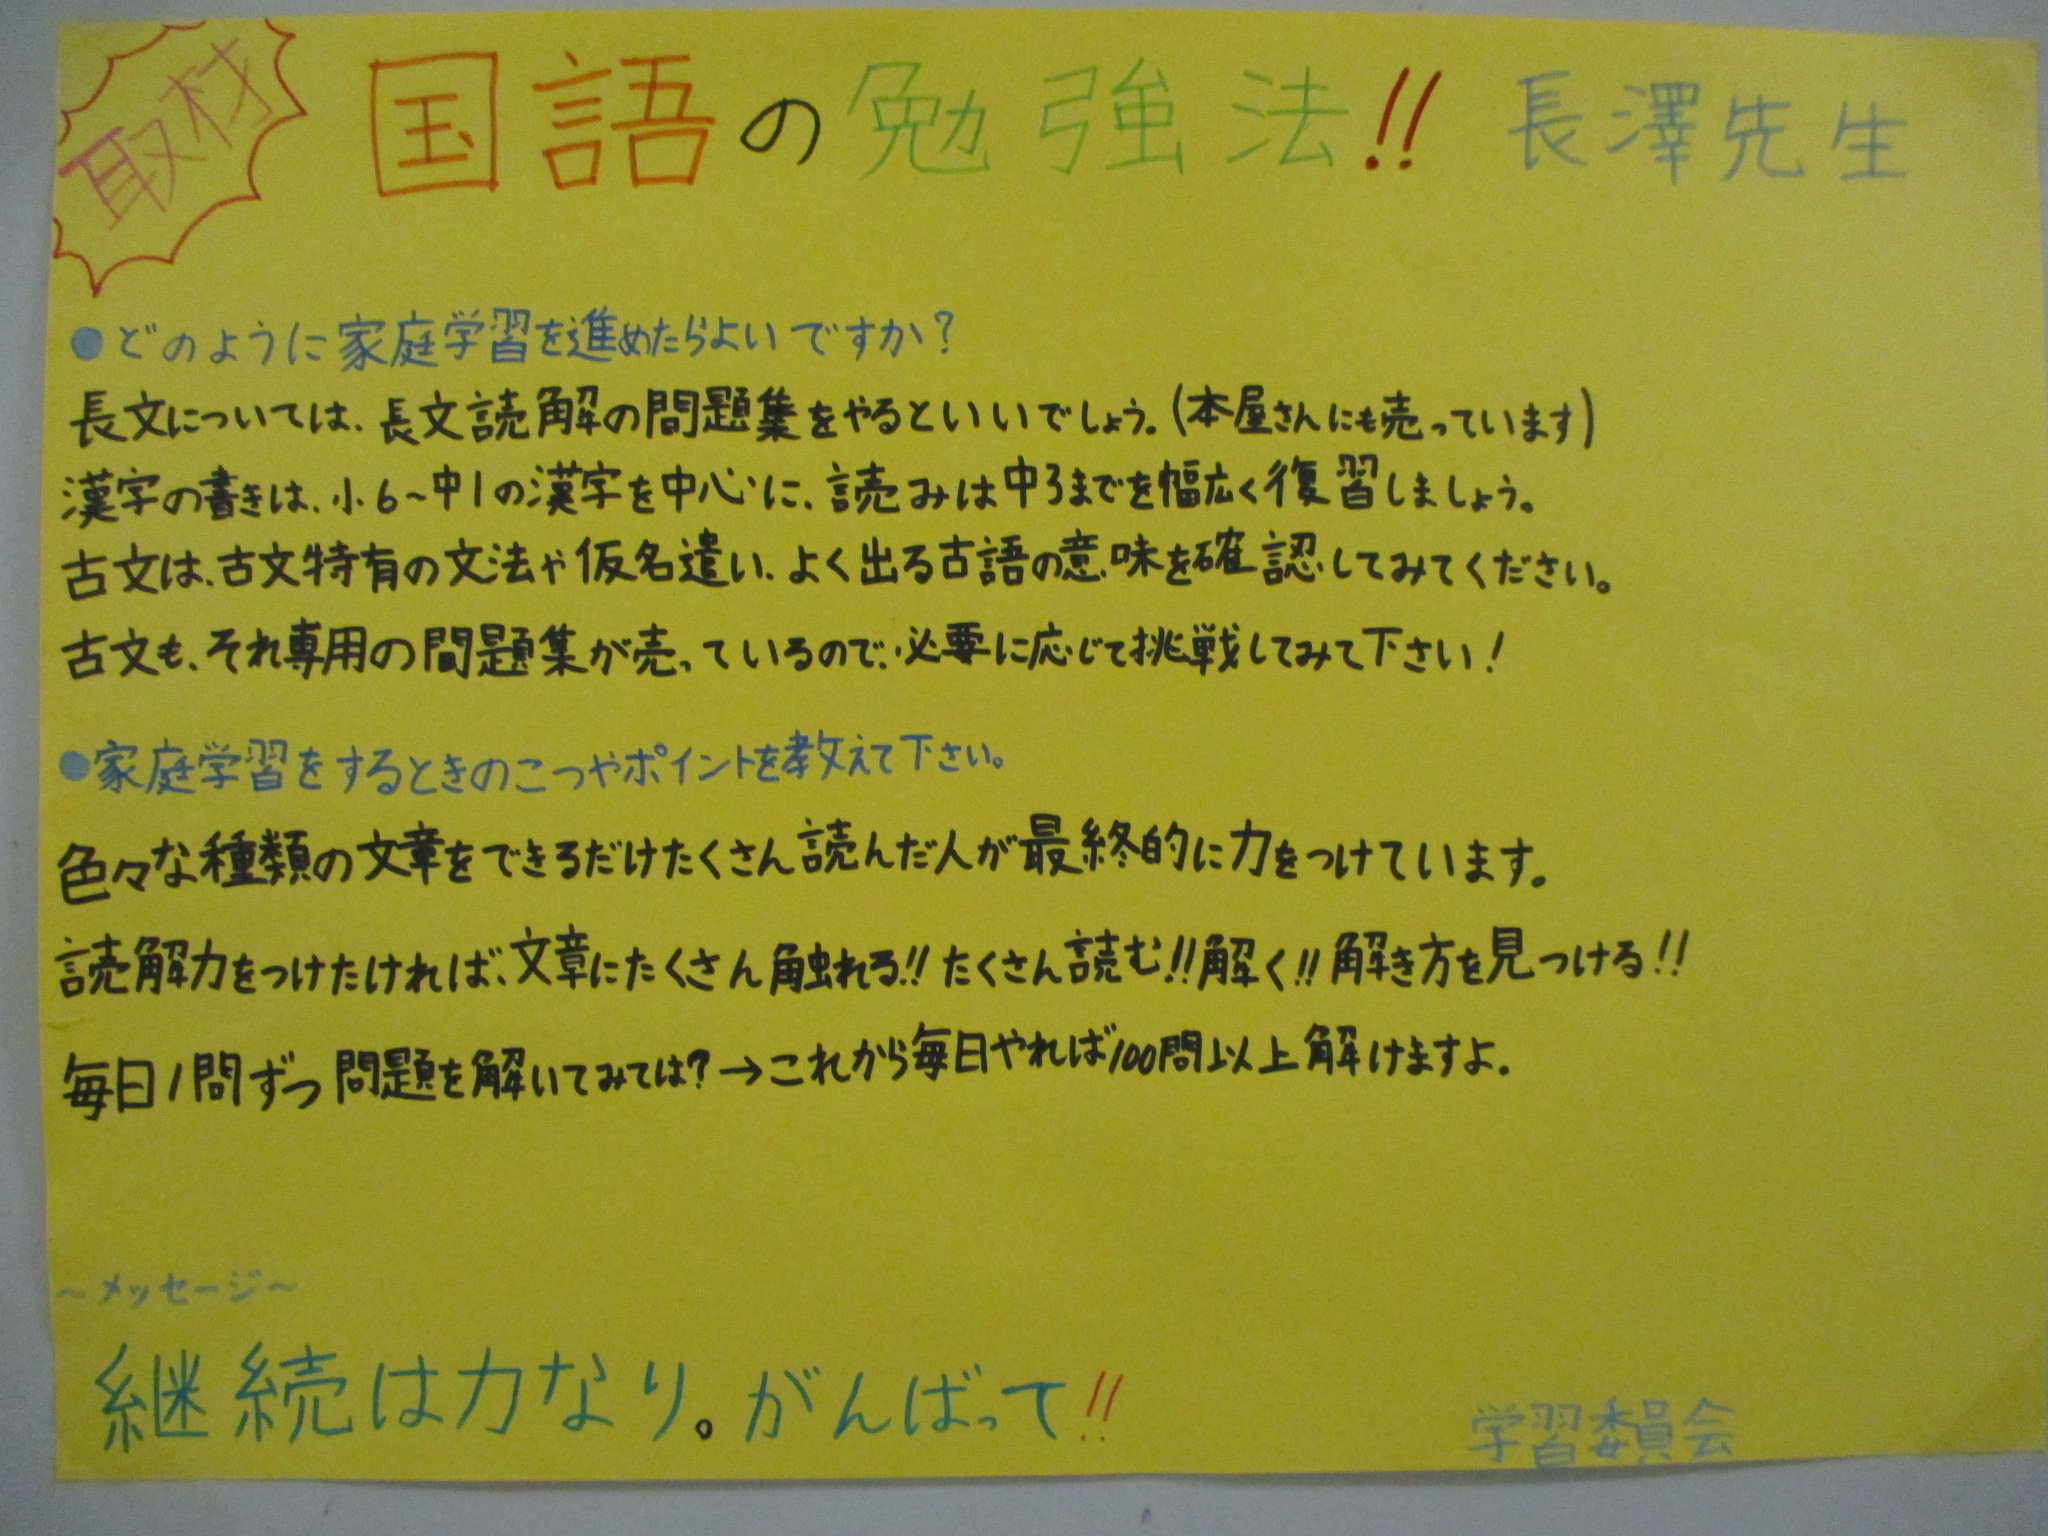 取材
国語の勉強法!! 長澤先生
●どのように家庭学習を進めたらよいですか?
長文については、長文読解の問題集をやるといいでしょう。(本屋さんにも売っています)
漢字の書きは、小6~中1の漢字を中心に、読みは中3までを幅広く復習しましょう。
古文は、古文特有の文法や仮名遣い、よく出る古語の意味を確認してみてください。
古文も、それ専用の問題集が売っているので、必要に応じて挑戦してみて下さい!
●家庭学習をするときのこつやポイントを教えて下さい。
色々な種類の文章をできるだけたくさん読んだ人が最終的に力をつけています。
読解力をつけたければ、文章にたくさん触れる!!たくさん読む!!解く!!解き方を見つける!!
毎日1問ずつ問題を解いてみては?→これから毎日やれば100問以上解けますよ。
~メッセージ~
継続は力なり。がんばって!!
学習委員会